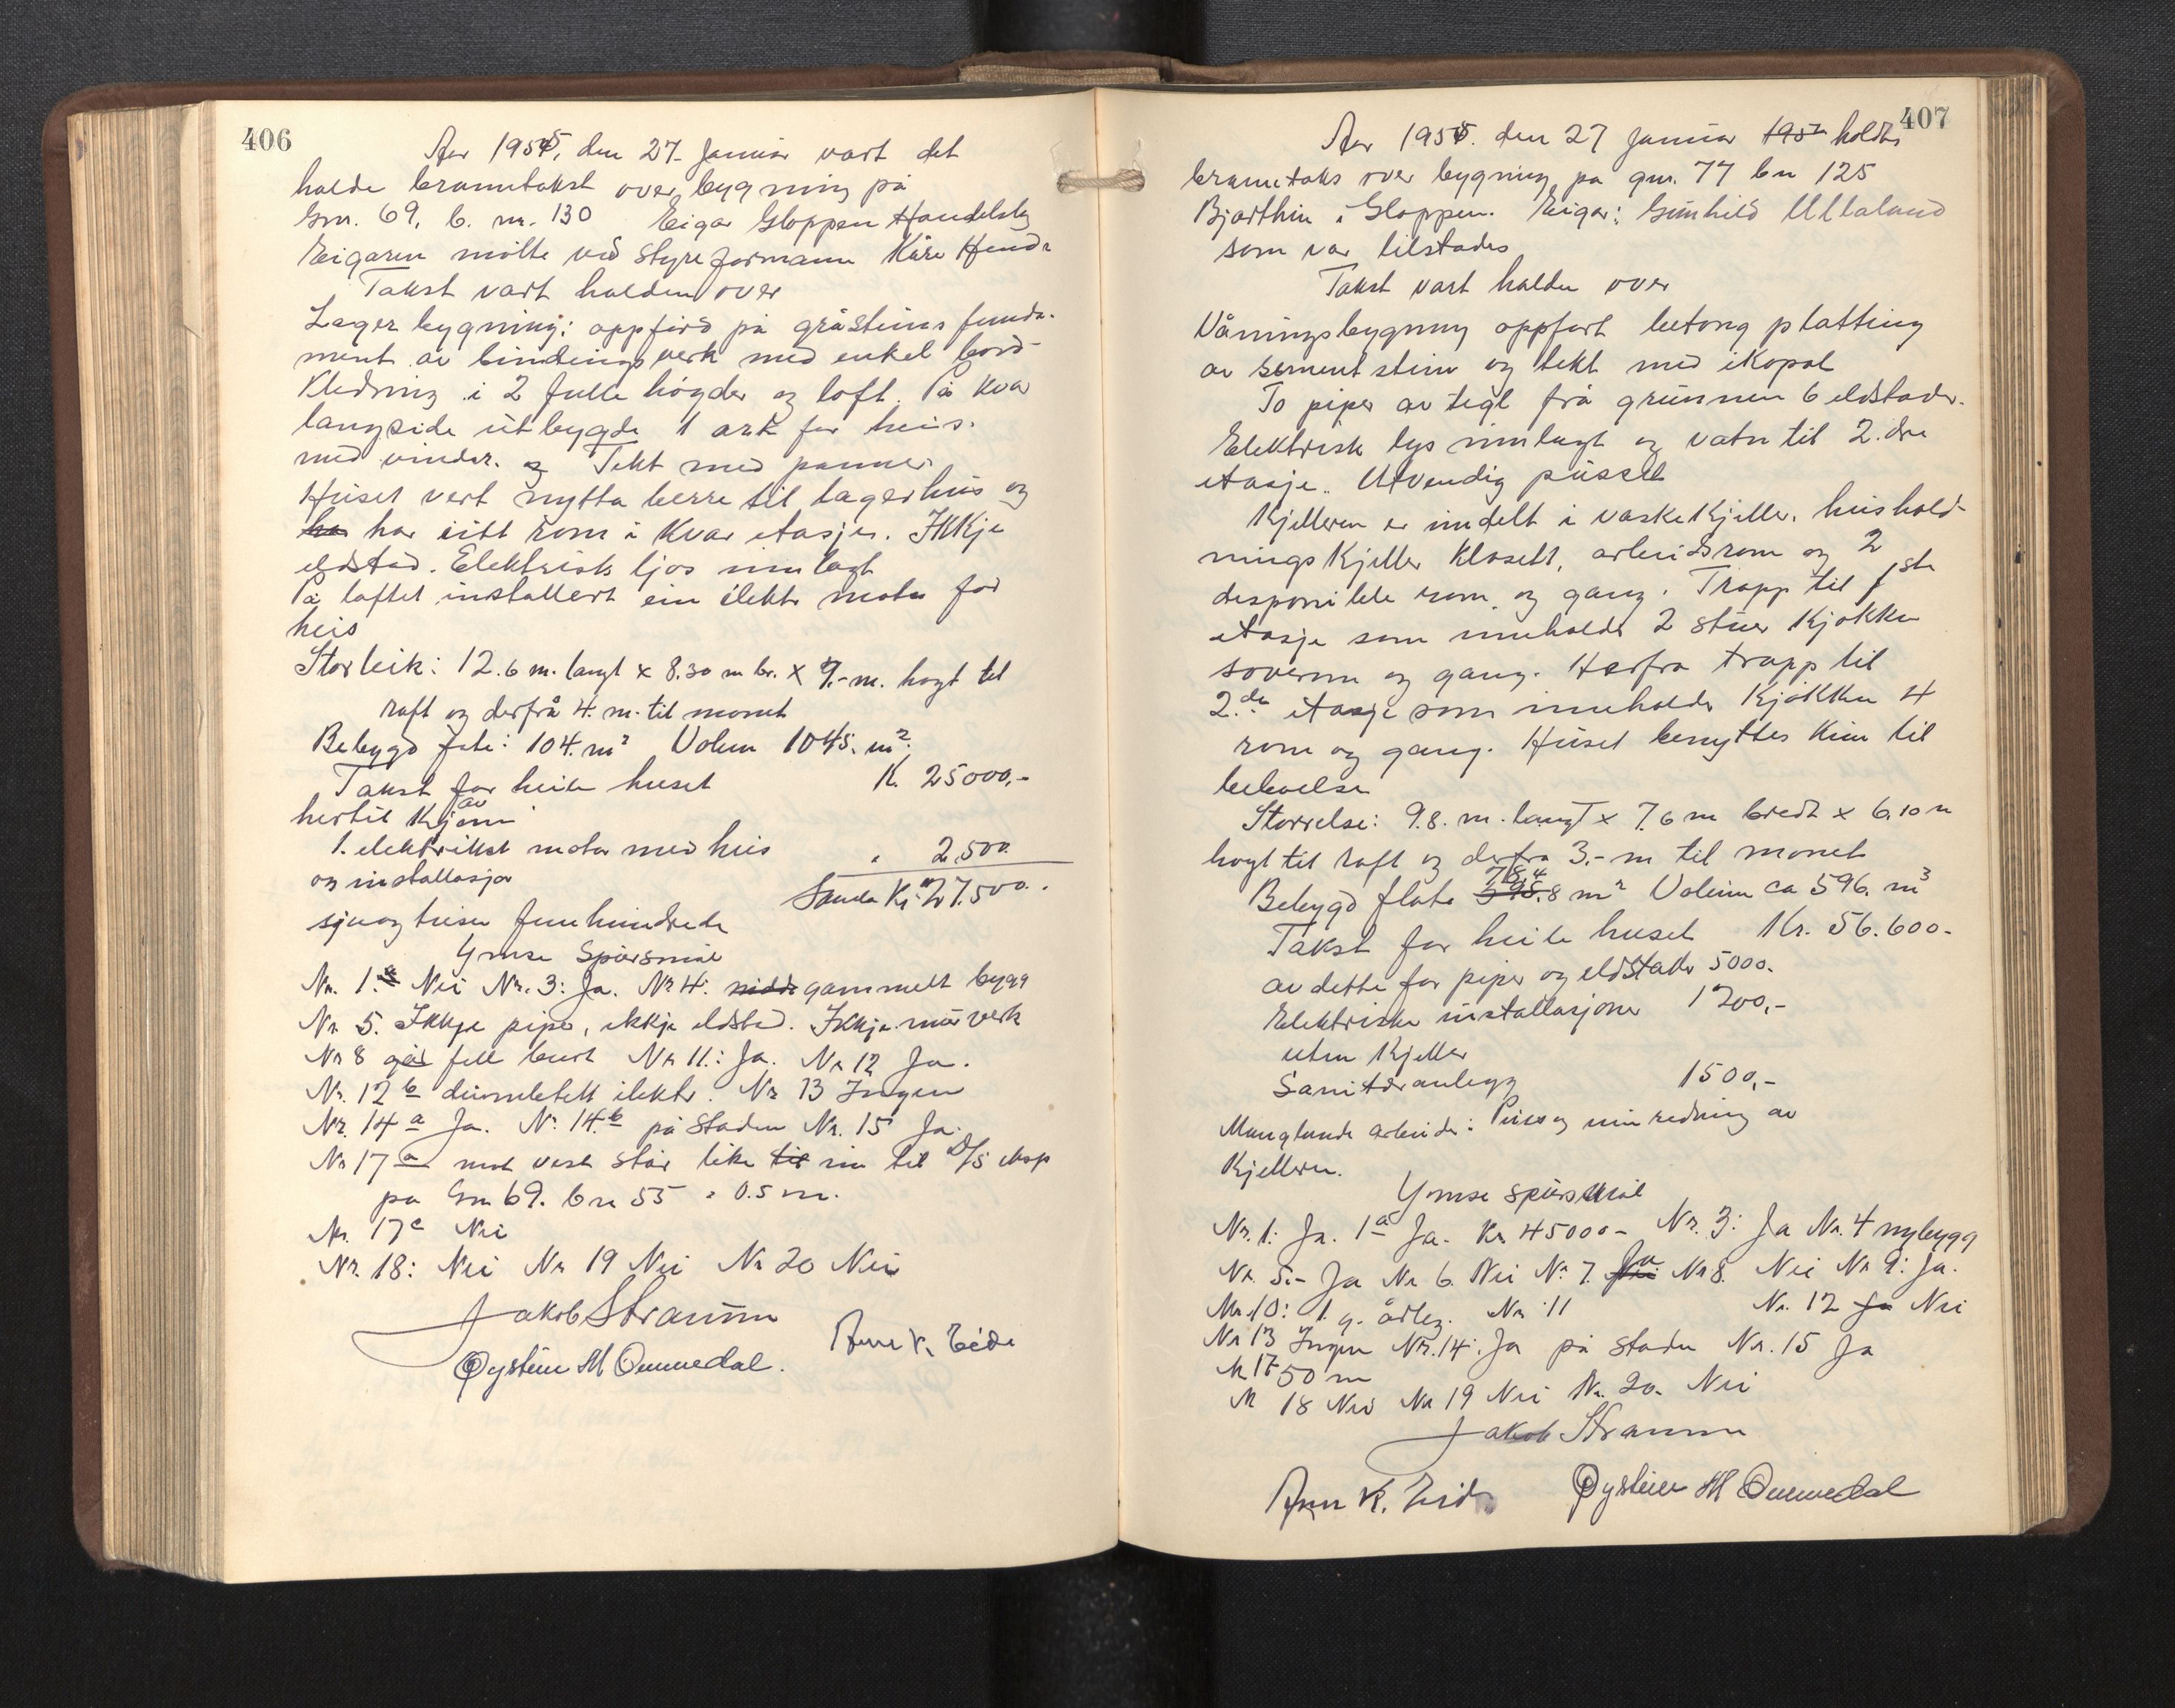 406
Aar 1955, den 27. Januar vart det
halde branntakst over bygning på
Gnr. 69, b. nr. 130 Eigar Gloppen Handelslg
Eigaren møtte ved styreformann Kåre
Takst vart halden over
Lagerbygning: oppførd på gråsteins funda-
ment av bindingsverk med enkel bord-
kledning i 2 fulle høgder og loft. På kvar
langside utbygde 1 ark for heis.
med vinder. og Tekt med panner
Huset vert nytta berre til lagerhus og
ha har eitt rom i kvar etasje. Ikkje
eldstad. Elektrisk ljos innlagt
På loftet installert ein elektr motor for
heis
Storleik: 12.6 m. langt x 8.30 m br. x 7.- m. høgt til
raft og derfrå 4. m. til mønet
Bebygd flate: 104. m² Volum 1045. m²
Takst for heile huset K. 25000,-
hertil kjem av
1. elektrikst motor med heis " 2,500.
og installasjon
Samla Kr. 27.500.
sjuogtjue femhundrede
Ymse Spørsmål
Nr. 1. a Nei Nr. 3: Ja. Nr 4: gammelt bygg
Nr 5. Ikkje pipe, ikkje eldsted. Ikkje murverk
Nr 8 går fell burt Nr 11: Ja. Nr 12 Ja.
Nr. 12 b elektr. Nr 13 Ingen
Nr. 14 a Ja. Nr. 14. b på staden Nr. 15 Ja.
Nr 17 a mot vest står like til inn til D/S eksp
på Gnr 69. bnr 55 = 0.5 m.
Nr. 17 c Nei
Nr. 18: Nei Nr 19 Nei Nr 20 Nei
Jakob Straume
K. Eide
Øystein M Ommedal.
407
Aar 1955. den 27 Januar 195 holdts
branntaks over bygning på gnr. 77 bn 125
i Gloppen. Eigar: Gunhild Ullaland
som var tilstades
Takst vart halden over
Våningsbygning oppført betong platting
av sementstein og tekt med ikopal
To piper av tegl frå grunnen 6 eldstader.
Elektrisk lys innlagt og vatn til 2. dre
etasje. Utvendig pusset
Kjelleren er inndelt i vaskekjeller, hushold-
ningskjeller klosett, arbeidsrom og 2
disponible rom og gang. Trapp til 1ste
etasje som inneholder 2 stuer kjøkken
soverom og gang. Herfra trapp til
2.de etasje som inneholder kjøkken 4
rom og gang. Huset benyttes kun til
beboelse
Størrelse: 9.8. m. langt x 7.6 m bredt x 6.10 m
høgt til raft og derfra 3.- m til mønet
Bebygd flate 78.4 595.8 m² Volum ca 596. m³
Takst for heile huset Kr. 56.600-
av dette for piper og eldstader 5000.
Elektriske installasjoner 1200,-
uten kjeller
Sanitæranlegg 1500,-
Manglande arbeide: Puss og innredning av
kjelleren.
Ymse spørsmål
Nr. 1: Ja. 1 a Ja. Kr 45000- Nr. 3: Ja Nr. 4 nybygg
Nr. 5.- Ja Nr 6. Nei Nr 7. Nei Ja Nr 8. Nei Nr 9: Ja.
Nr. 10: 1 g. årleg. Nr 11 Nr. 12 Ja Nei
Nr 13 Ingen Nr. 14: Ja på staden Nr. 15 Ja
Nr 17 50 m
Nr 18 Nei Nr 19 Nei Nr. 20. Nei
Jakob Straume
K. Eide Øystein M Ommedal